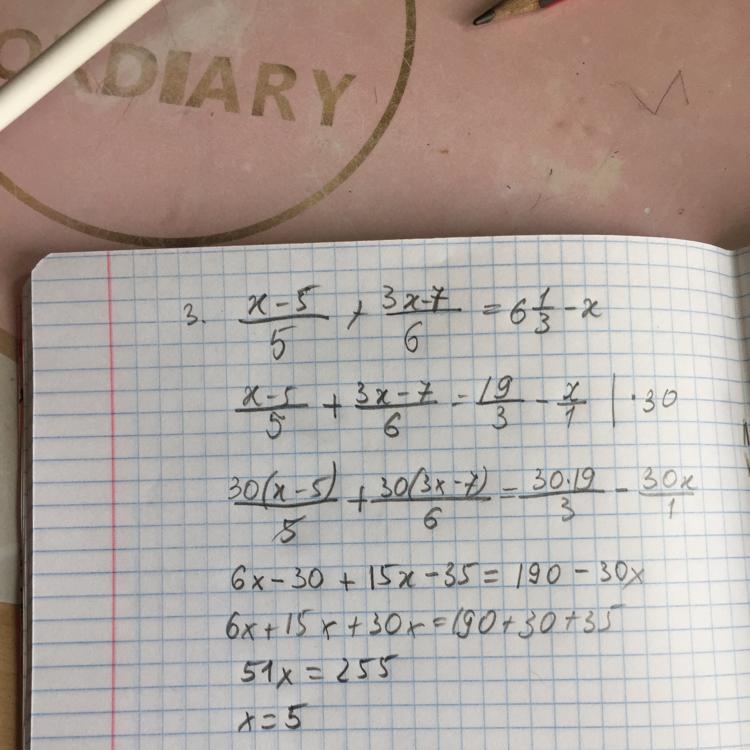 DIARY
3. (x-5)/5 + (3x-7)/6 = 6 1/3 - x
(x-5)/5 + (3x-7)/6 = 19/3 - x/1 | · 30
30(x-5)/5 + 30(3x-7)/6 = 30·19/3 - 30x/1
6x-30 + 15x-35 = 190 - 30x
6x+15x+30x=190+30+35
51x = 255
x=5